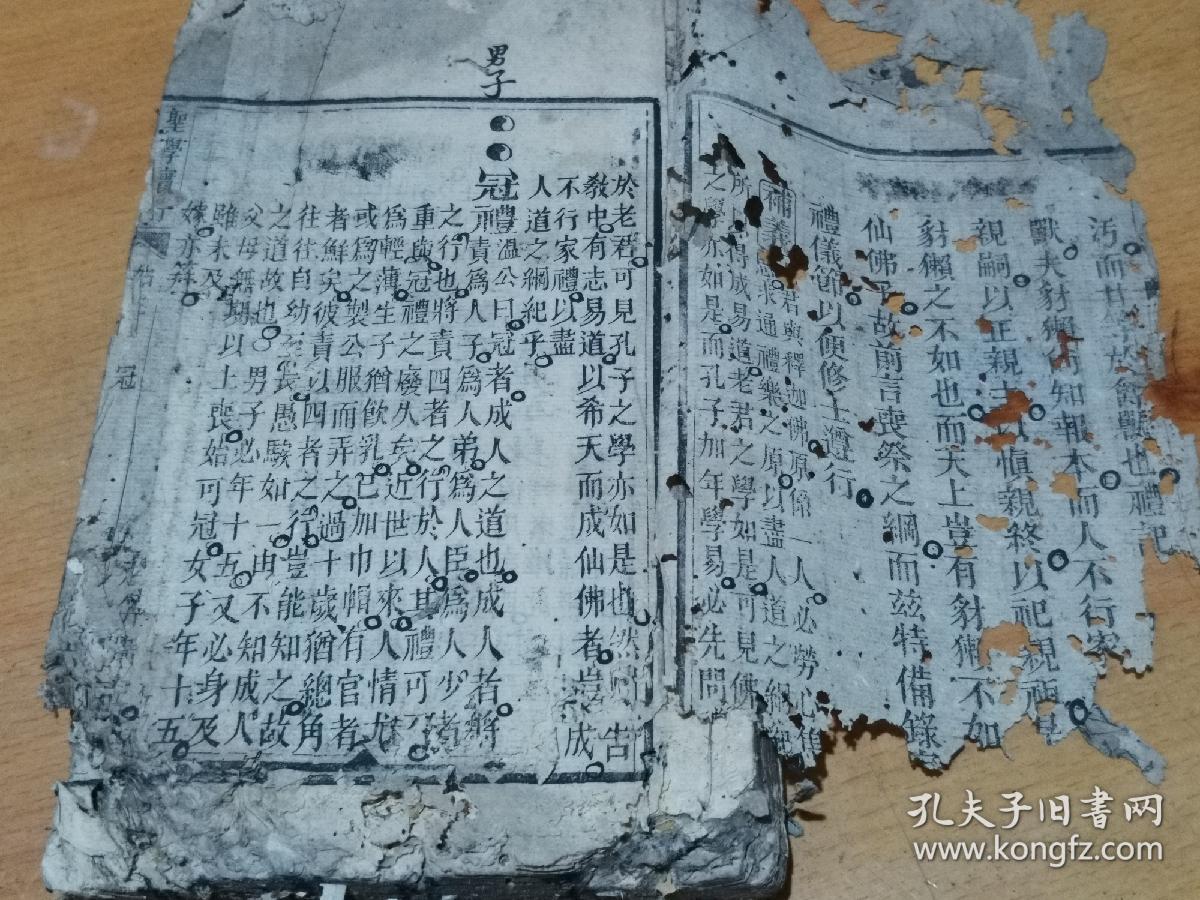 汚而於禽獸也禮記
獸夫豺獺知報本而人不行家
親嗣以正親士以慎親終以祀親
豺獺之不如也而天上豈有豺獺不如
仙佛乎故前言喪祭之綱而茲特備錄
禮儀節以便修士遵行
補義君與釋迦佛原係一人必勞心
求通禮樂之原以盡人道之綱
所得成易道老君之學如是可見佛
之學亦如是而孔子加年學易必先問
於老君可見孔子之學亦如是也然則古
教中有志易道以希天而成仙佛者豈成
不行家禮以盡
人道之綱紀乎
男子
冠禮溫公曰冠者成人之道也成人者將
責爲人子爲人弟爲人臣爲人少者
之行也將責四者之行於人其禮可不
重歟冠禮之廢久矣近世以來人情尤
爲輕薄生子猶飲乳已加巾帽有官者
或爲之製公服而弄之過十歲猶總角
者鮮矣彼責以四者之行豈能知之故
往往自幼至長愚騃如一由不知成人
之道故也男子必年十五又必身及
父母無期以上喪始可冠女子年十五
雖未及
嫁亦笄
聖學會
冠
孔夫子旧书网
www.kongfz.com